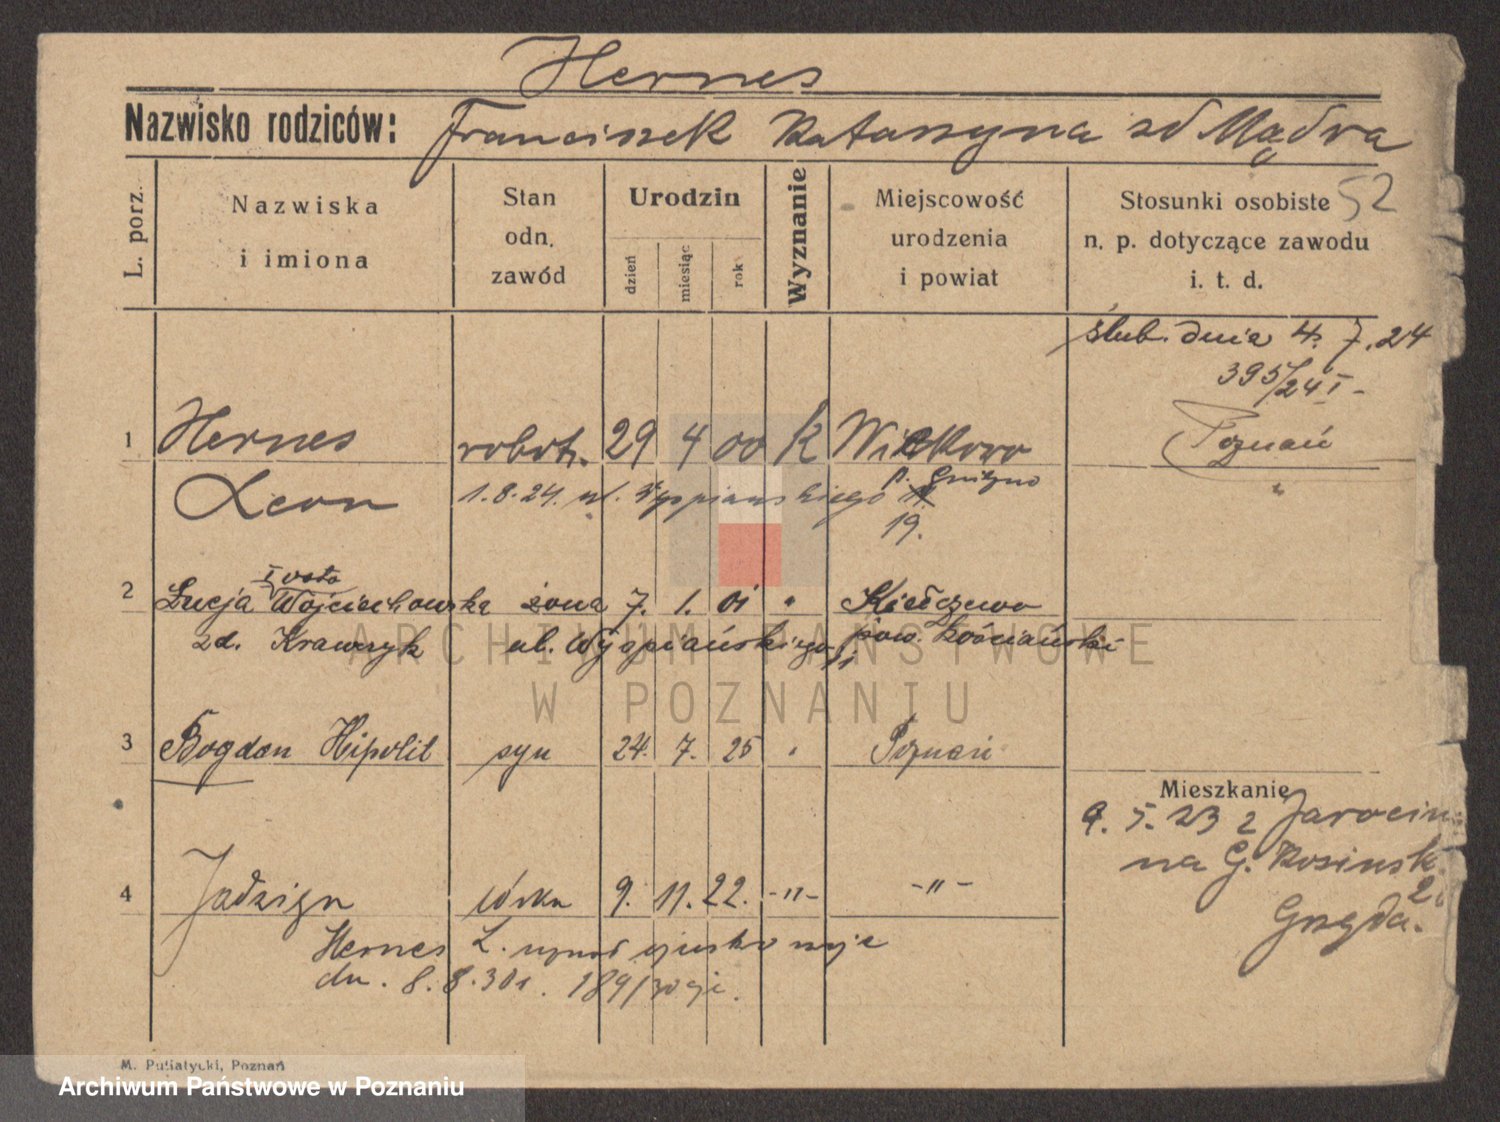 Hernes
Nazwisko rodziców: Franciszek Katarzyna zd Mądra
L. porz.
Nazwiska
i imiona
Stan
odn.
zawód
Urodzin
dzień
miesiąc
rok
Wyznanie
Miejscowość
urodzenia
i powiat
Stosunki osobiste 52
n. p. dotyczące zawodu
i. t. d.
ślub. dnia 4. 7. 24
395/24 I -
Poznań
1 Hernes robotn. 29 4 00 K Witkowo
p. Gniezno
Leon 1.8.24. ul. Wyspiańskiego
19.
I voto
2 Łucja Wojciechowska żona 7. 1. 01 " Kiełczewo
zd. Krawczyk ul. Wyspiańskiego pow. kościański
3 Bogdan Hipolit syn 24. 7. 25 " Poznań
Mieszkanie
9. 5. 23 z Jarocin
na G. Kosinsk
4 Jadwiga córka 9. 11. 22. -"- -"-
Hernes L. uznał ojcostwo
dn. 8.8.30r.
M. Putiatycki, Poznań
ARCHIWUM PAŃSTWOWE
W POZNANIU
Archiwum Państwowe w Poznaniu